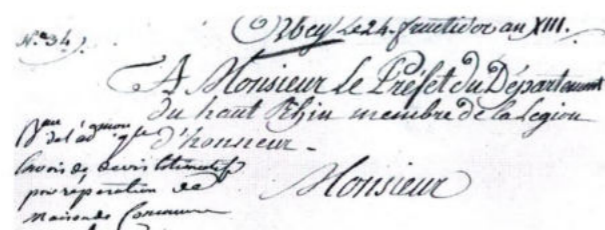 N.° 34.
Orbey le 24. fructidor an XIII.
A Monsieur le Préfet du Département
du haut Rhin membre de la Legion
d'honneur.
Monsieur
Envoi de devis
pour reparation de
maison de Commune